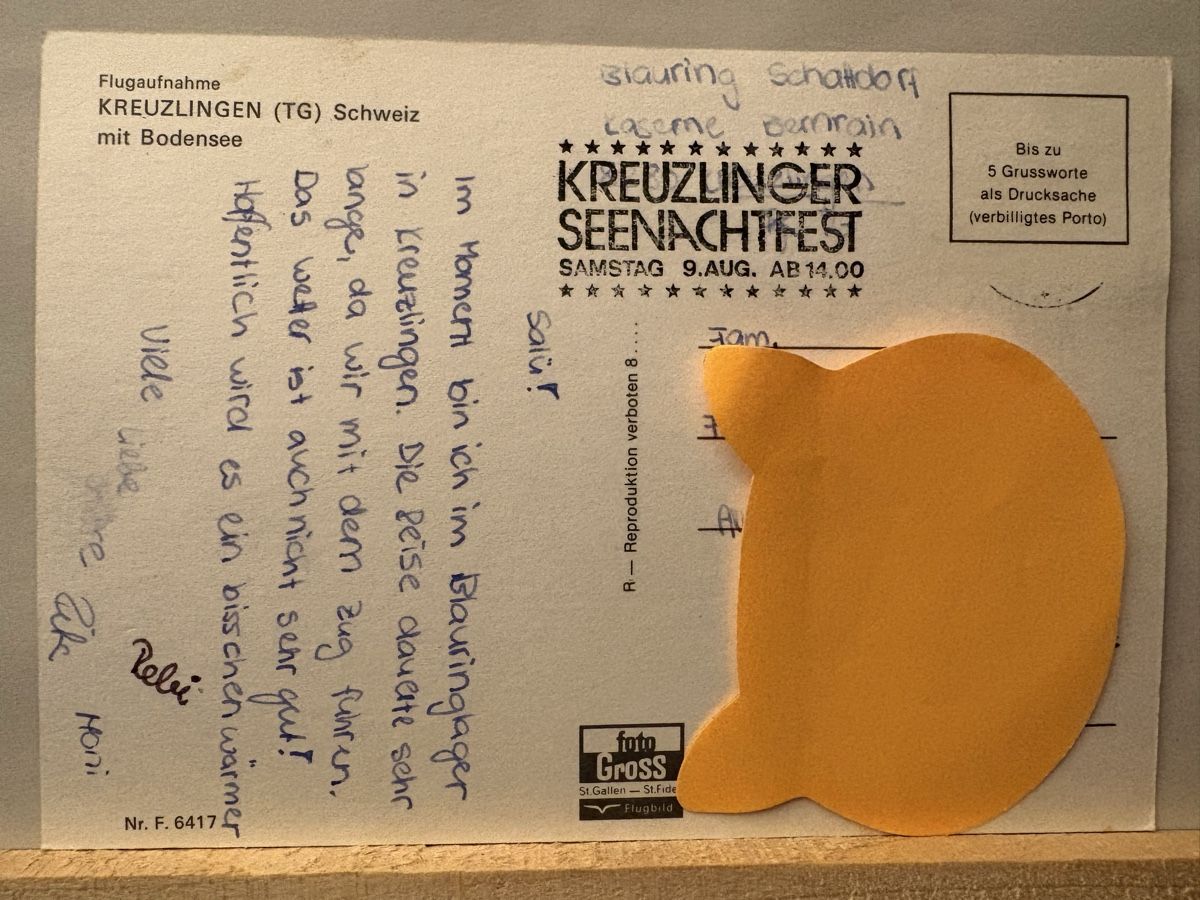 Flugaufnahme
KREUZLINGEN (TG) Schweiz
mit Bodensee
Salü!
Im Moment bin ich im Blauringlager
in Kreuzlingen. Die Reise dauerte sehr
lange, da wir mit dem Zug fuhren.
Das Wetter ist auch nicht sehr gut!
Hoffentlich wird es ein bisschen wärmer
Viele Liebe
Moni
Nr. F. 6417
Blauring Schattdorf
Kaserne Bernrain
★ ★ ★ ★ ★ ★ ★ ★ ★ ★ ★ ★
KREUZLINGER
SEENACHTFEST
SAMSTAG 9.AUG. AB 14.00
★ ★ ★ ★ ★ ★ ★ ★ ★ ★ ★ ★
Bis zu
5 Grussworte
als Drucksache
(verbilligtes Porto)
R — Reproduktion verboten 8....
Fam.
foto
Gross
St.Gallen — St.Fide
Flugbild